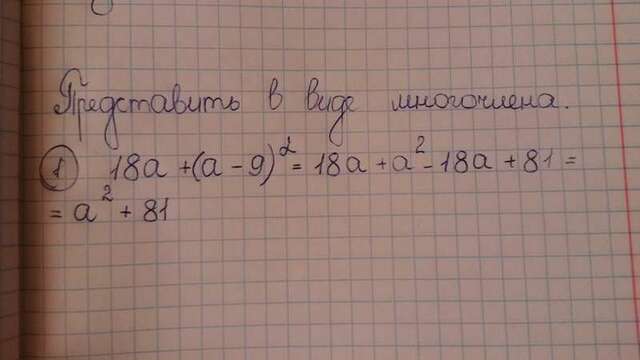 Представить в виде многочлена.
1 18a + (a - 9)² = 18a + a² - 18a + 81 =
= a² + 81